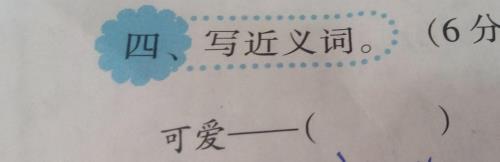 四、写近义词。(6分
可爱——(    )